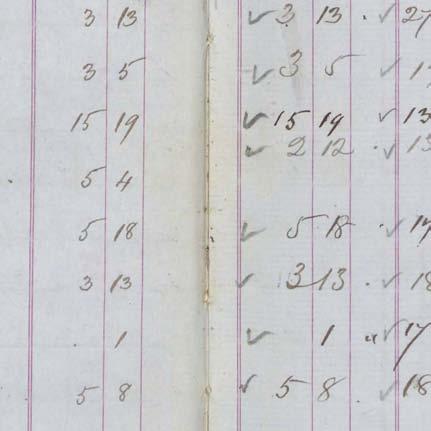 3 13 ✓ 3 13 . ✓ 27
3 5 ✓ 3 5 ✓
15 19 ✓ 15 19 ✓ 13
✓ 2 12 . ✓ 13
5 4
5 18 ✓ 5 18 . ✓
3 13 ✓ 3 13 . ✓ 18
1 ✓ 1 " ✓ 17
5 8 ✓ 5 8 ✓ 18